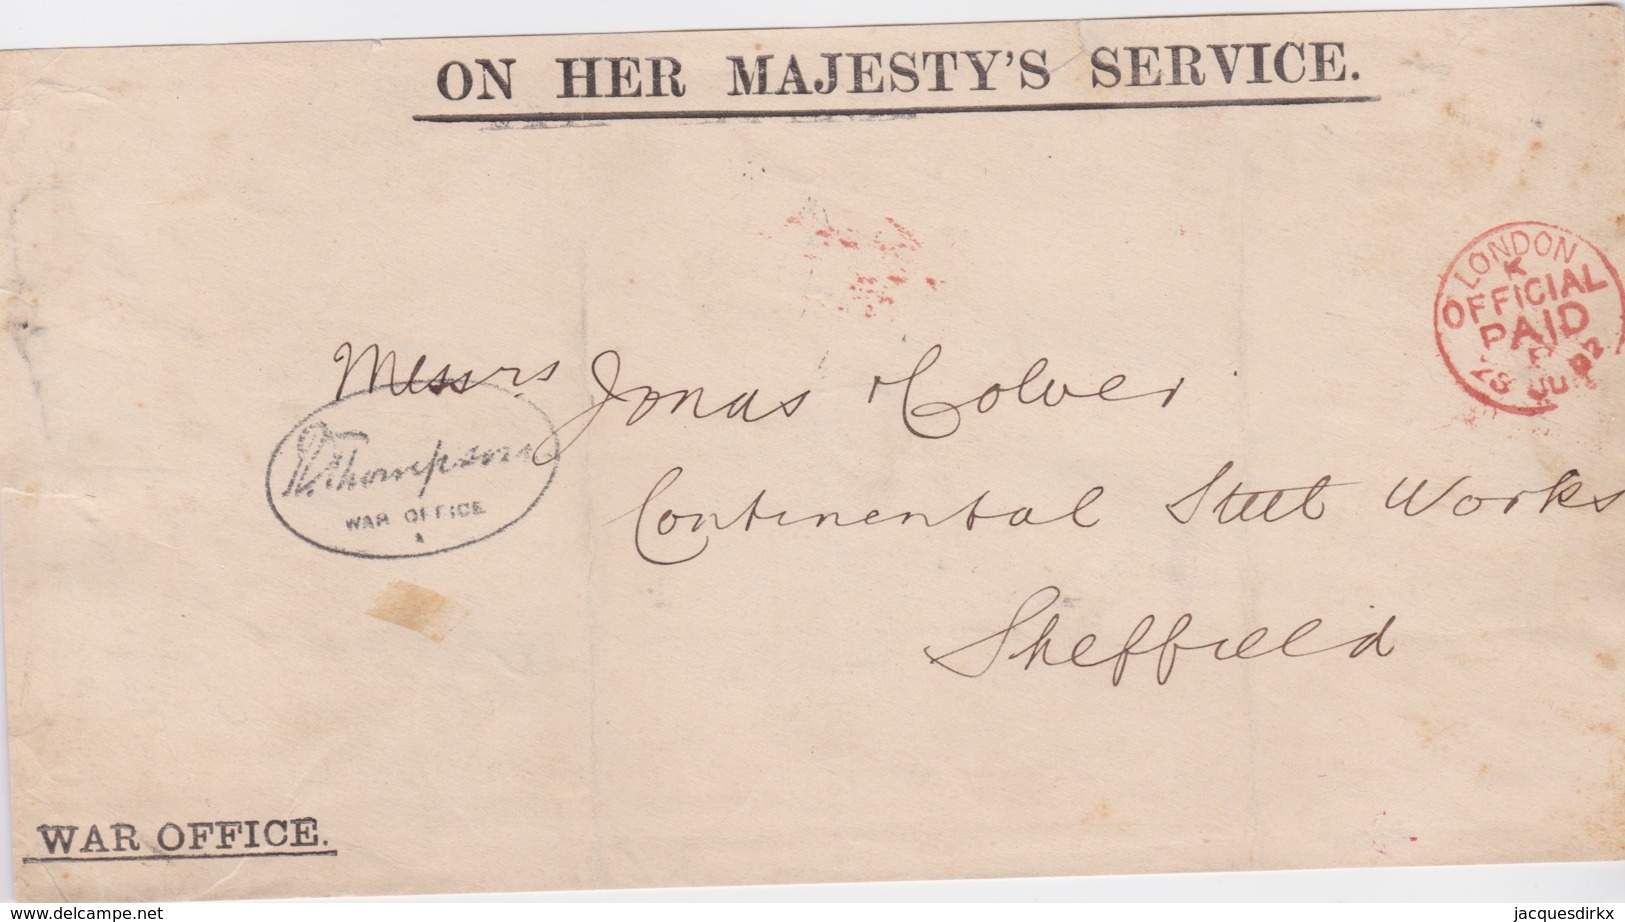 ON HER MAJESTY'S SERVICE.
LONDON
K
OFFICIAL
PAID
23 JU 92
Messrs Jonas & Colver
Thompson
WAR OFFICE
Continental Steel Works
Sheffield
WAR OFFICE.
delcampe.net
jacquesdirkx